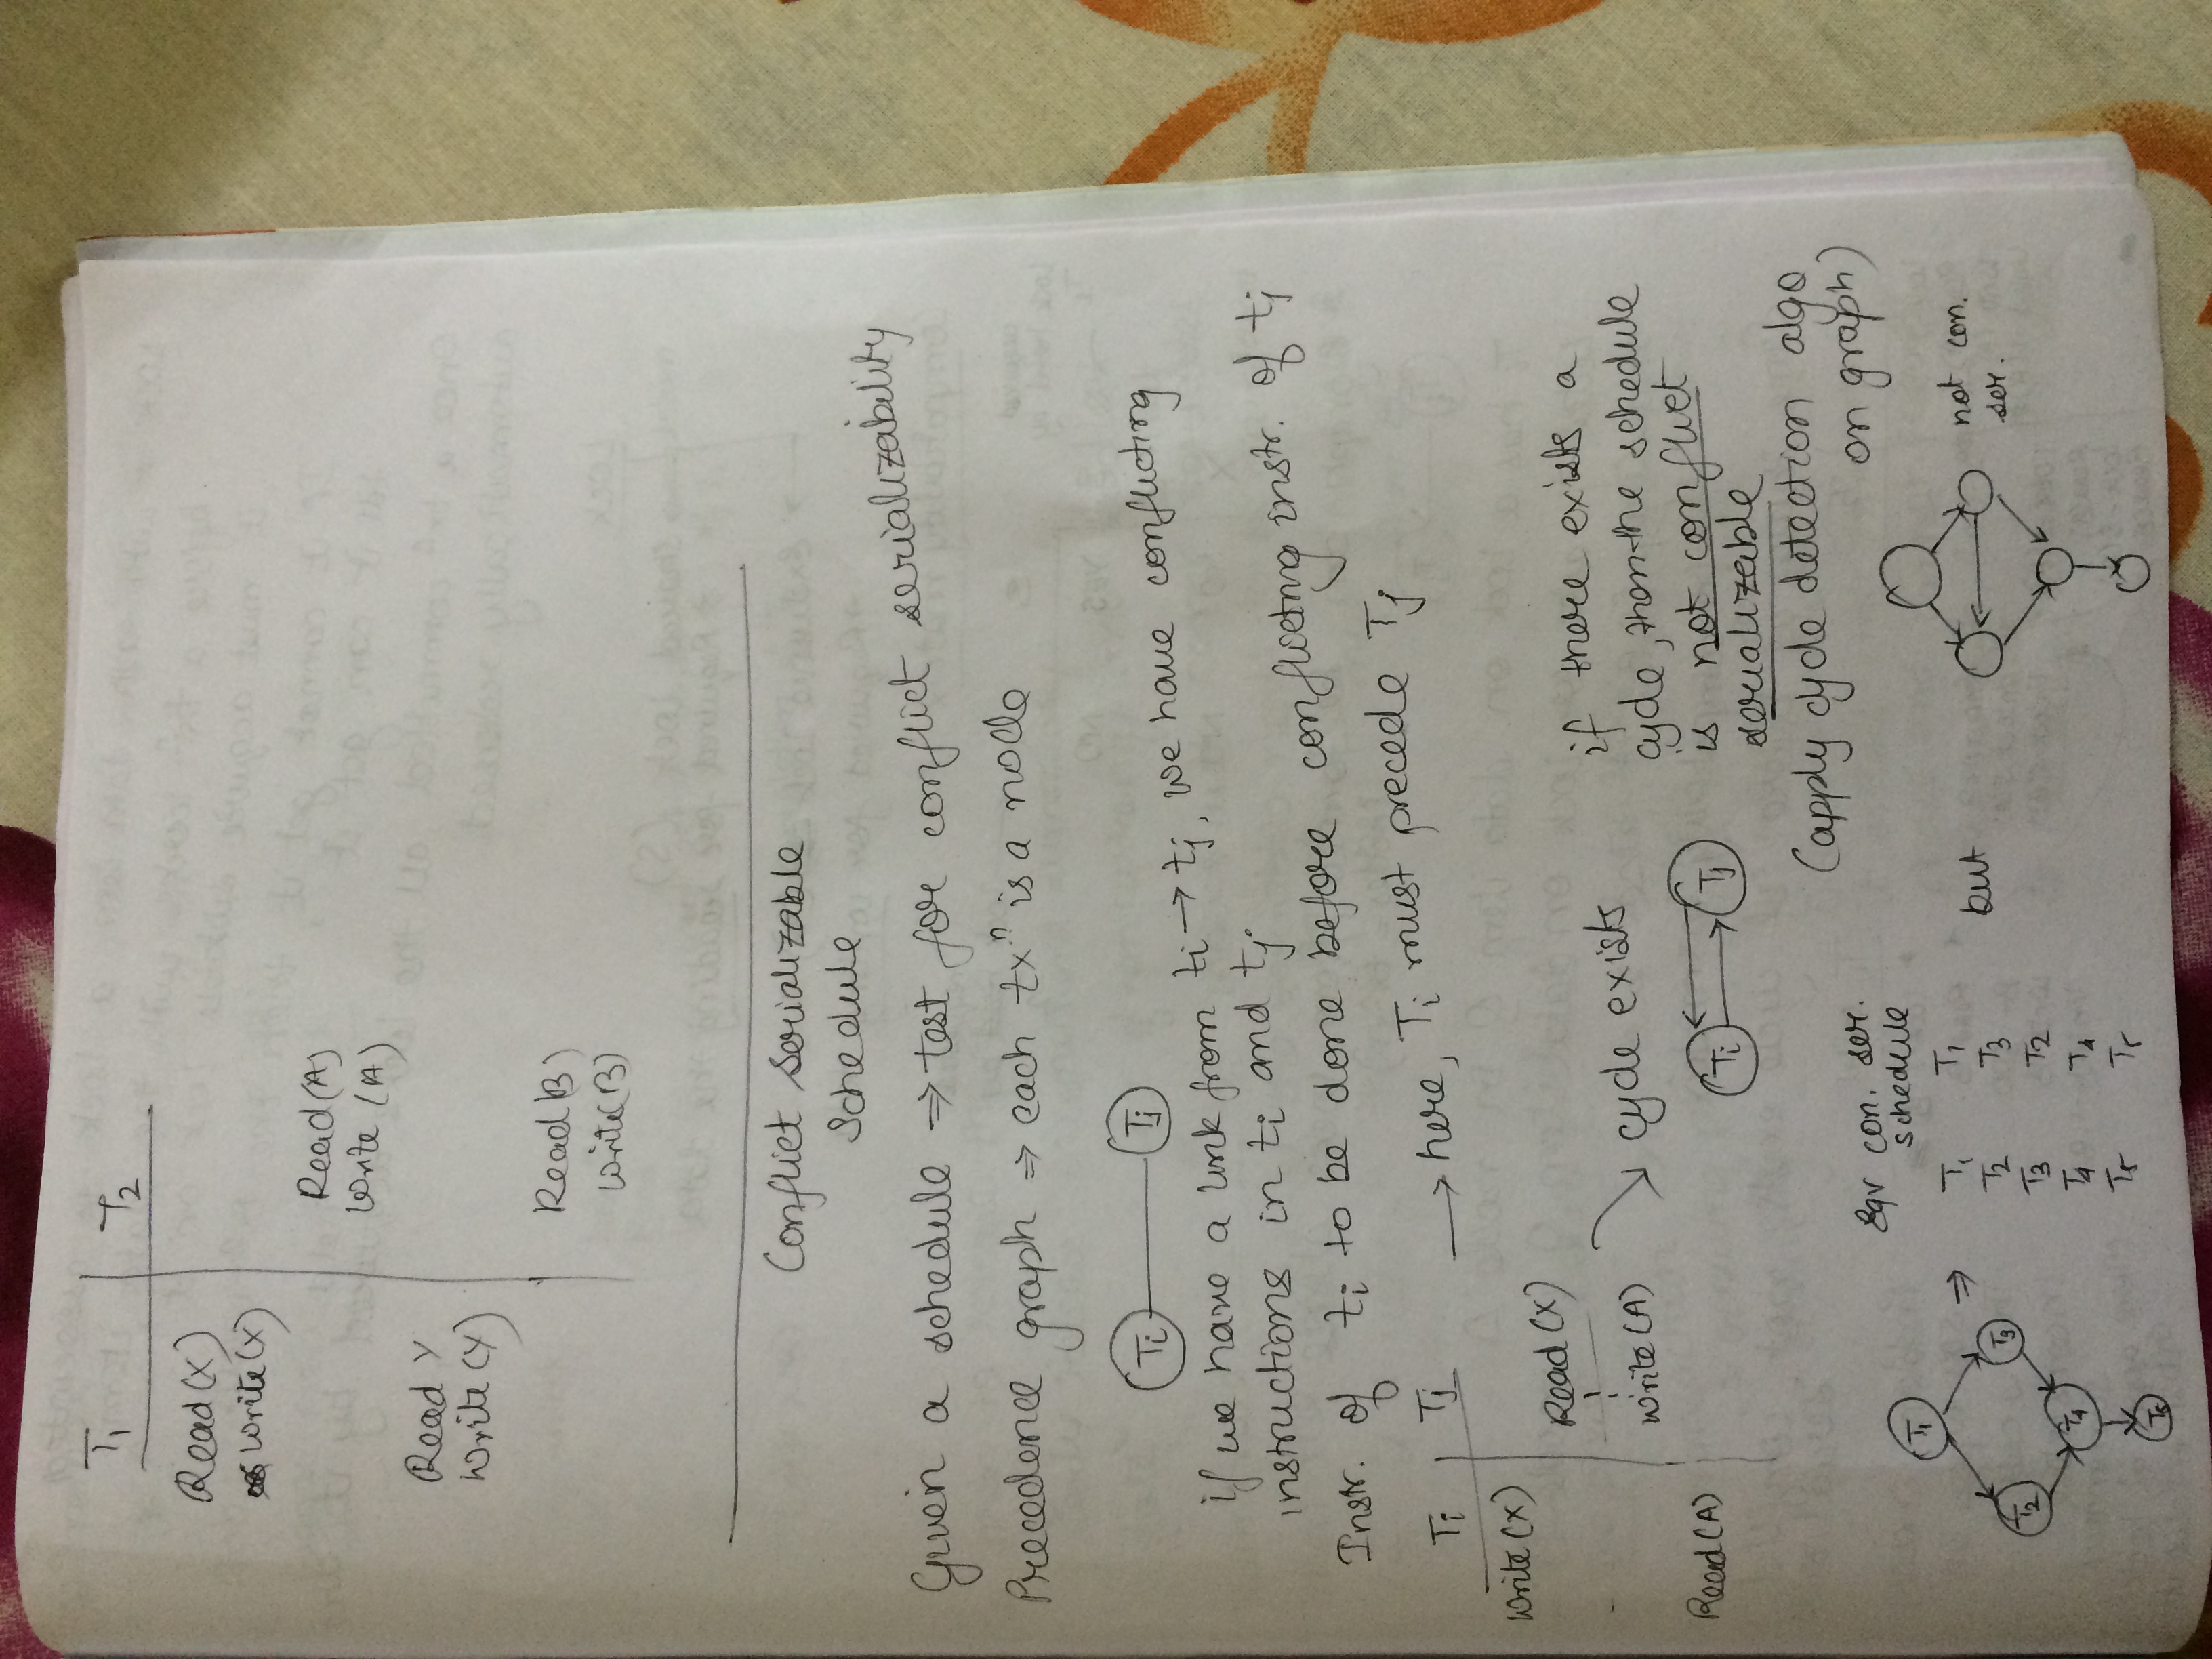 T1 T2
Read(X)
Write(X)
Read(A)
Write (A)
Read Y
Write (Y)
Read(B)
Write(B)
Conflict Serializable
Schedule
Given a schedule ⇒ test for conflict serializability
Precedence graph ⇒ each txⁿ is a node
Ti Tj
if we have a link from ti → tj, we have conflicting
instructions in ti and tj
Instr. of ti to be done before conflicting instr. of tj
Ti Tj → here, Ti must precede Tj
Write (X)
Read (X)
Write (A)
Read (A)
cycle exists
Ti Tj
if there exists a
cycle, then the schedule
is not conflict
serializable
(apply cycle detection algo
on graph)
T1
T2 T3
T4
T5
⇒
Eqv con. ser.
schedule
T1 T1
T2 T3
T3 T2
T4 T4
T5 T5
but
not con.
ser.